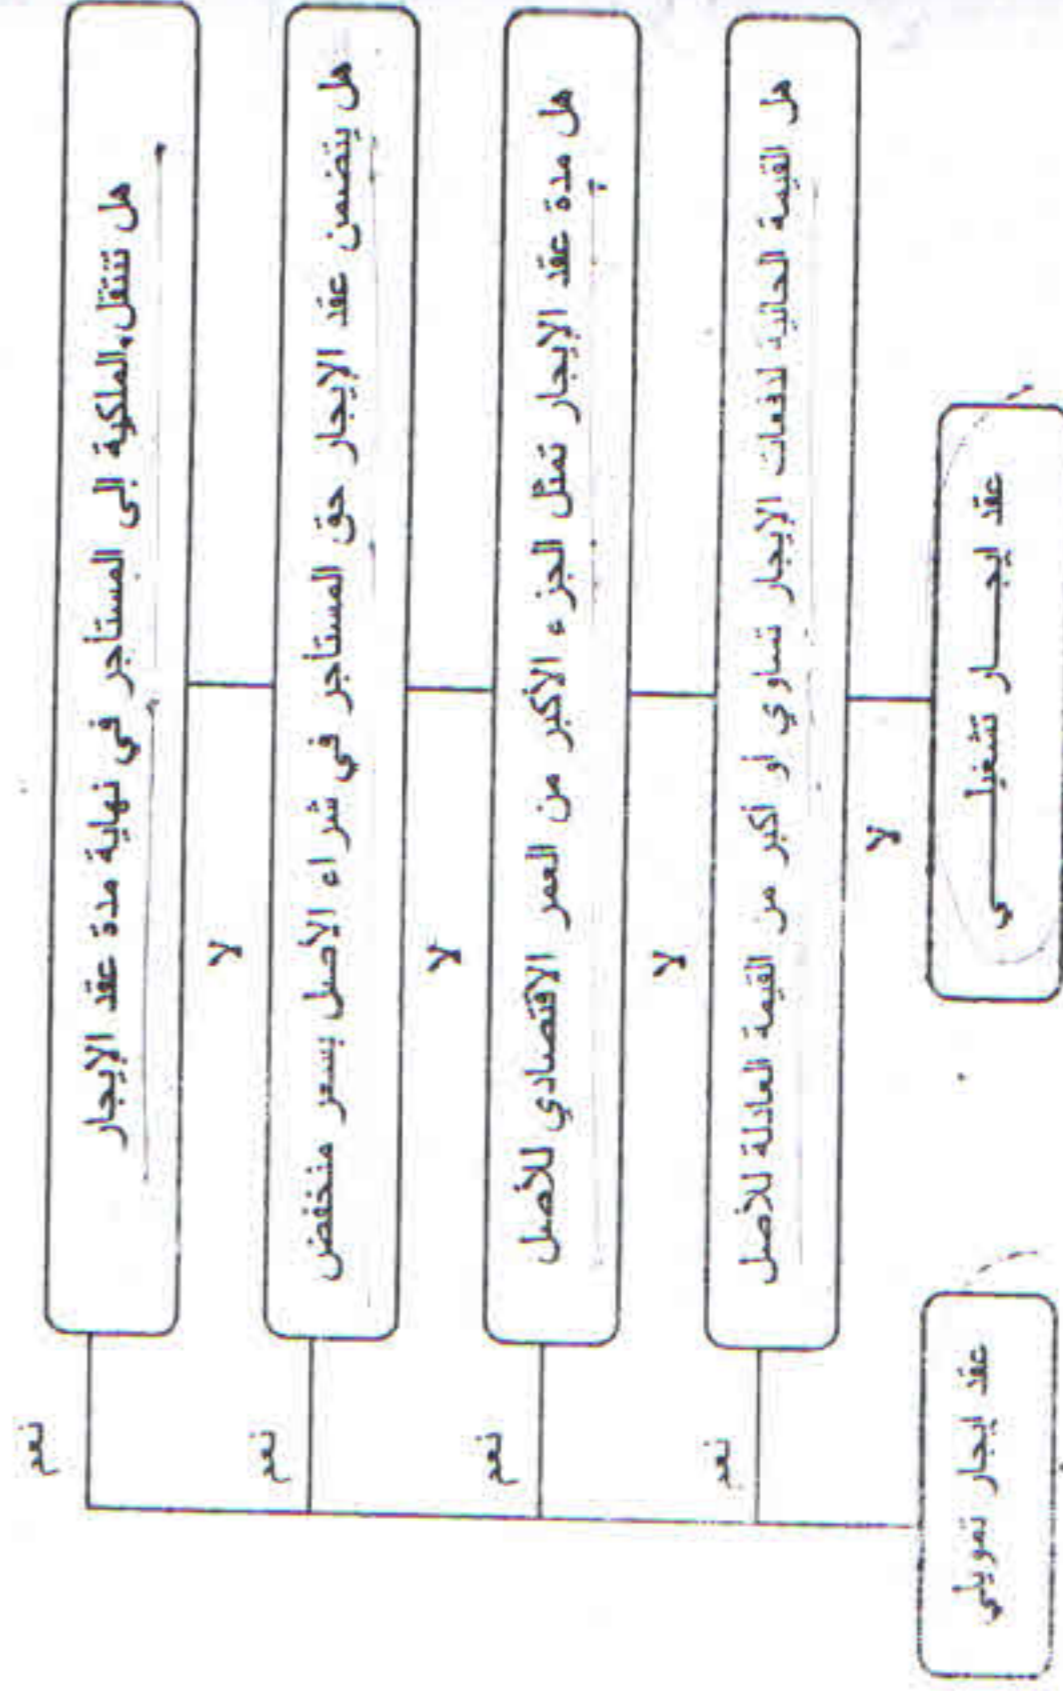 هل تنتقل الملكية إلى المستأجر في نهاية مدة عقد الإيجار
نعم
لا
هل يتضمن عقد الإيجار حق المستأجر في شراء الأصل بسعر منخفض
نعم
لا
هل مدة عقد الإيجار تمثل الجزء الأكبر من العمر الاقتصادي للأصل
نعم
لا
هل القيمة الحالية لدفعات الإيجار تساوي أو أكبر من القيمة العادلة للأصل
نعم
لا
عقد ايجـــار تشغيلـــي
عقد ايجار تمويلي